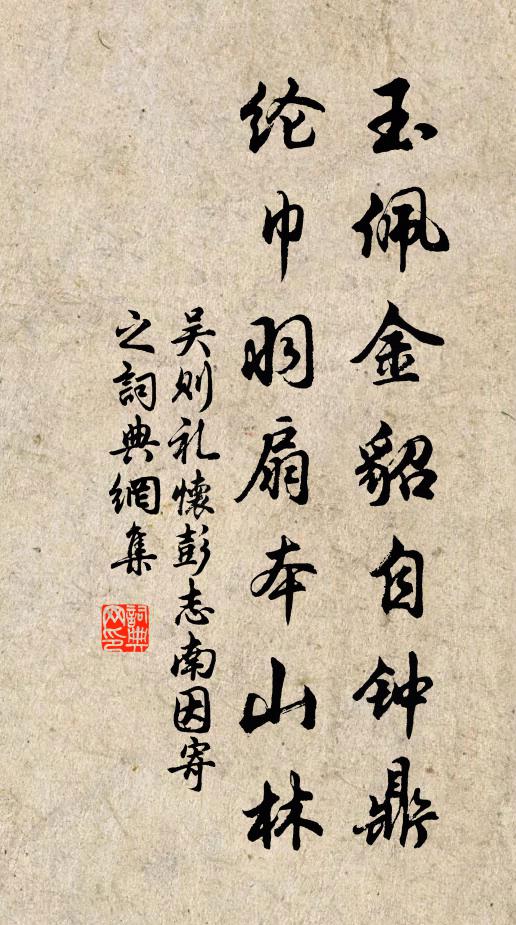 玉佩金貂自钟鼎
纶巾羽扇本山林
吴则礼懷彭志南因寄
之詞典網集
詞典网印